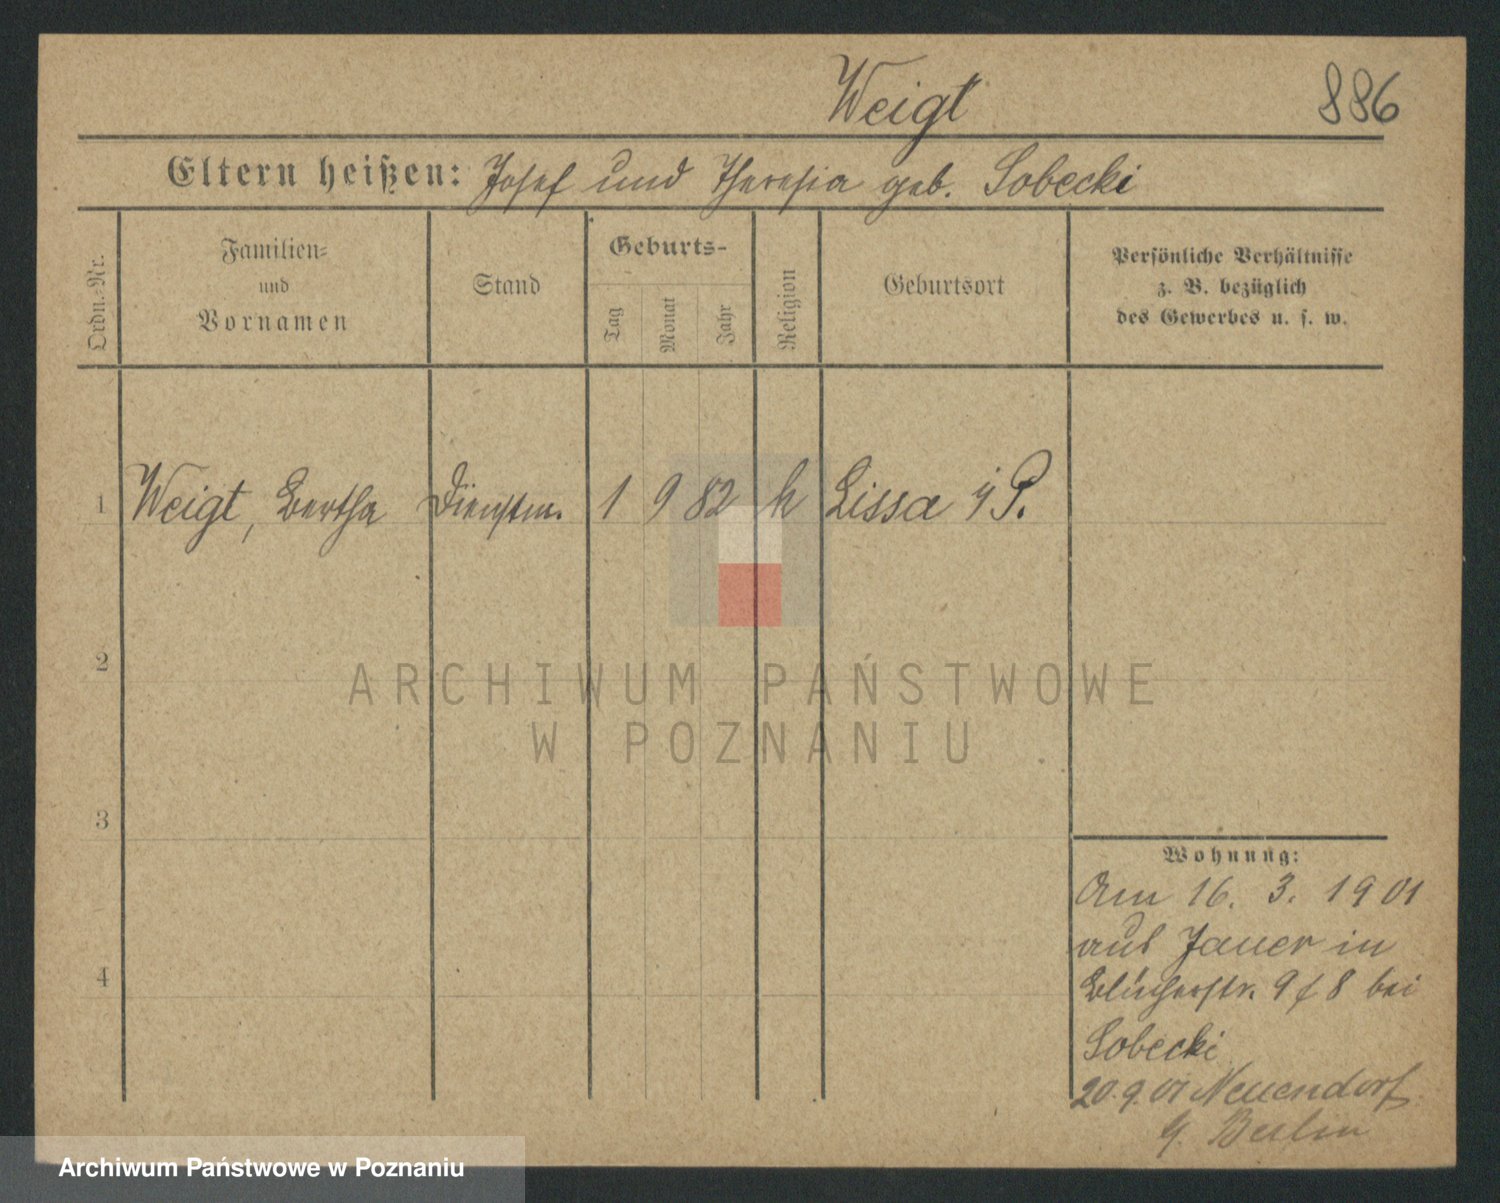 Weigt
886
Eltern heißen: Josef und Theresia geb. Sobecki
Ordn.-Nr.
Familien-
und
Vornamen
Stand
Geburts-
Tag
Monat
Jahr
Religion
Geburtsort
Persönliche Verhältnisse
z. B. bezüglich
des Gewerbes u. s. w.
1 Weigt, Bertha Dienstm. 1 9 82 k Lissa i/P.
2
ARCHIWUM PAŃSTWOWE
W POZNANIU
3
Wohnung:
Am 16. 3. 1901
aus Jauer in
Blücherstr. 9 f 8 bei
4
Sobecki
20.9.01 Neuendorf
b. Berlin
Archiwum Państwowe w Poznaniu